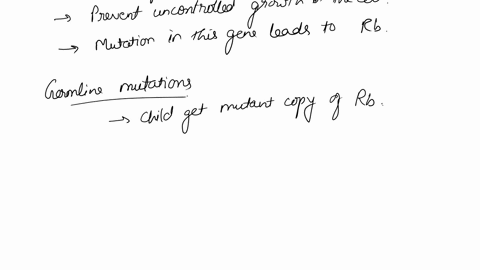 → Prevent uncontrolled growth of the cell.
→ Mutation in this gene leads to Rb.
Germline mutations
→ Child get mutant copy of Rb.